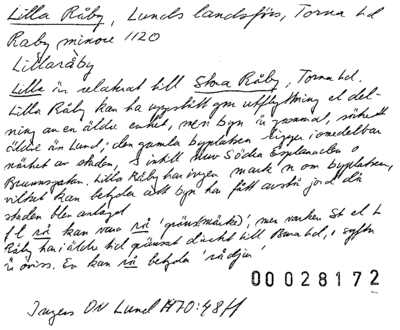 Lilla Råby, Lunds landsförs, Torna hd
Raby minore 1120
Lillaråby
Lilla är relaterat till Stora Råby, Torna hd.
Lilla Råby kan ha uppstått gm utflyttning el del-
ning av en äldre enhet, men byn är gammal, säkert
äldre än Lund; den gamla byplatsen ligger i omedelbar
närhet av staden, S intill nuv Södra Esplanaden o
Brunnsgatan. Lilla Råby har ingen mark n om byplatsen,
vilket kan betyda att byn har fått avstå jord då
staden blev anlagd.
f l rå kan vara rå 'gränsmärke', men varken St el L
Råby har i äldre tid gränsat direkt till Bara hd, syftn
är oviss. Ev kan rå betyda 'rådjur'
00028172
Ingers DN Lund H70:48ff